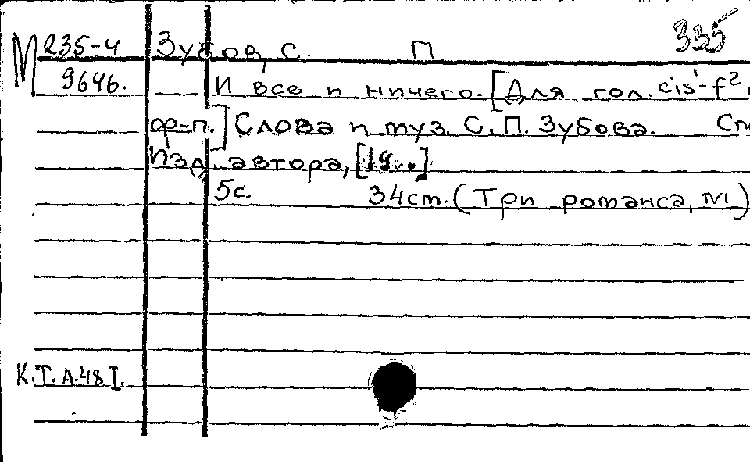 335
М 235-4 Зубов, С. П
9646. И все и ничего. [Для гол. cis¹-f²,
ф-п.] Слова и муз. С. П. Зубова. Сп
Изд. автора, [19..]
5с. 34см. (Три романса, №1)
К.Т.А.48 I.